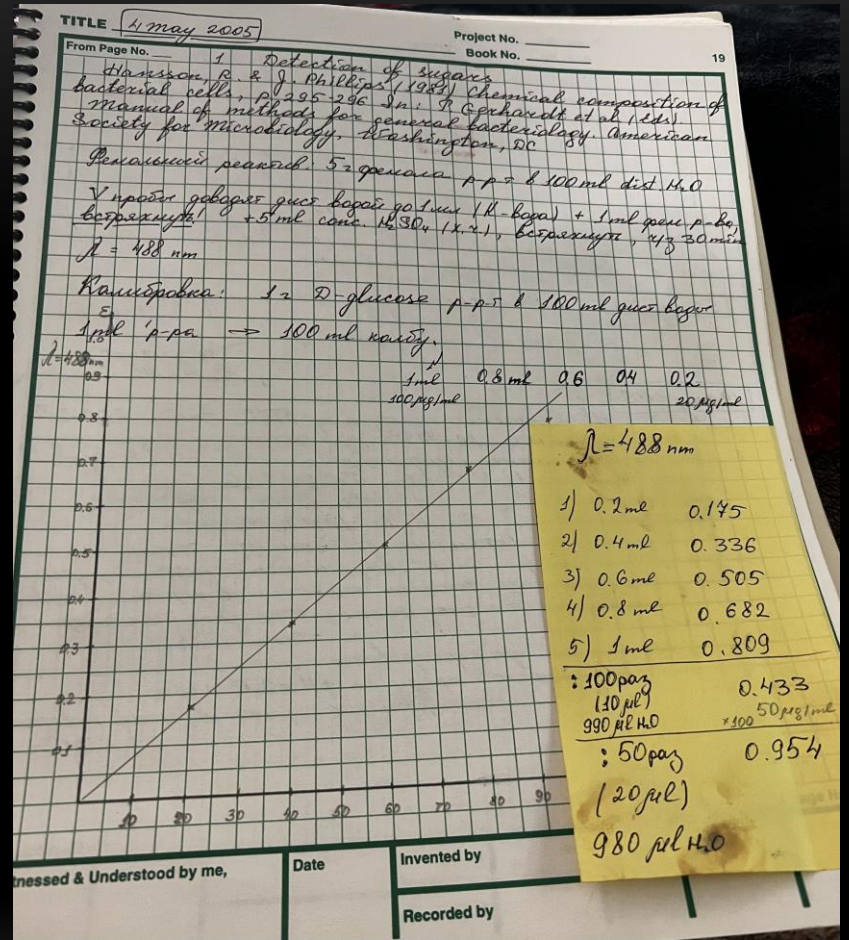 TITLE 4 may 2005
Project No.
From Page No.
Book No.
19
1 Detection of sugars
Hansson, R. & J. Phillips (1981) Chemical composition of
bacterial cells, p 295-296 In: P. Gerhardt et al (eds)
Manual of methods for general bacteriology. American
Society for Microbiology, Washington, DC
Фенольный реактив: 5г фенола р-р-т в 100ml dist. H₂O
У пробы доводят дист водой до 1 мл (К-вода) + 1ml фен р-ва,
встряхнуть! +5ml conc. H₂SO₄ (х.ч.), встряхнуть, ч/з 30min
λ = 488 nm
Калибровка: 1г D-glucose р-р-т в 100ml дист воды
1ml р-ра → 100 ml колбу.
E
λ=488nm
1ml 0.8 ml 0.6 0.4 0.2
100 μg/ml 20 μg/ml
0.9
0.8
0.7
0.6
0.5
0.4
0.3
0.2
0.1
10 20 30 40 50 60 70 80 90
λ=488 nm
1) 0.2 ml 0.175
2) 0.4 ml 0.336
3) 0.6 ml 0.505
4) 0.8 ml 0.682
5) 1 ml 0.809
: 100 раз 0.433
(10 μl) 50 μg/ml
990 μl H₂O ×100
: 50 раз 0.954
(20 μl)
980 μl H₂O
tnessed & Understood by me,
Date
Invented by
Recorded by